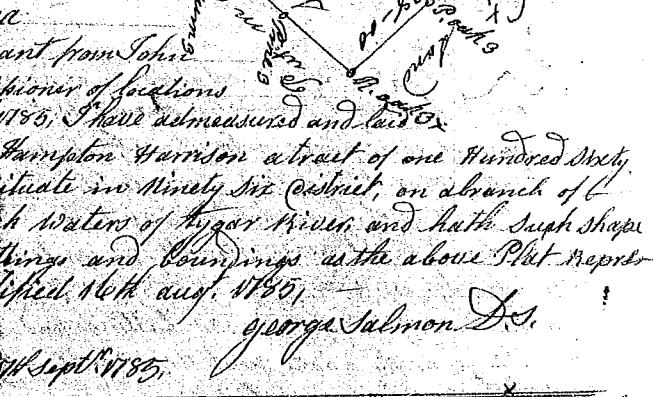 a
ant from John
sioner of locations
1785, I have admeasured and laid
Hampton Harrison a tract of one Hundred Sixty
ituate in Ninety Six District, on a branch of
h waters of Tygar River, and hath such shape
ttings and boundings as the above Plat Repres
tified 16th augt. 1785,
george Salmon D.S.
7th Septr. 1785,